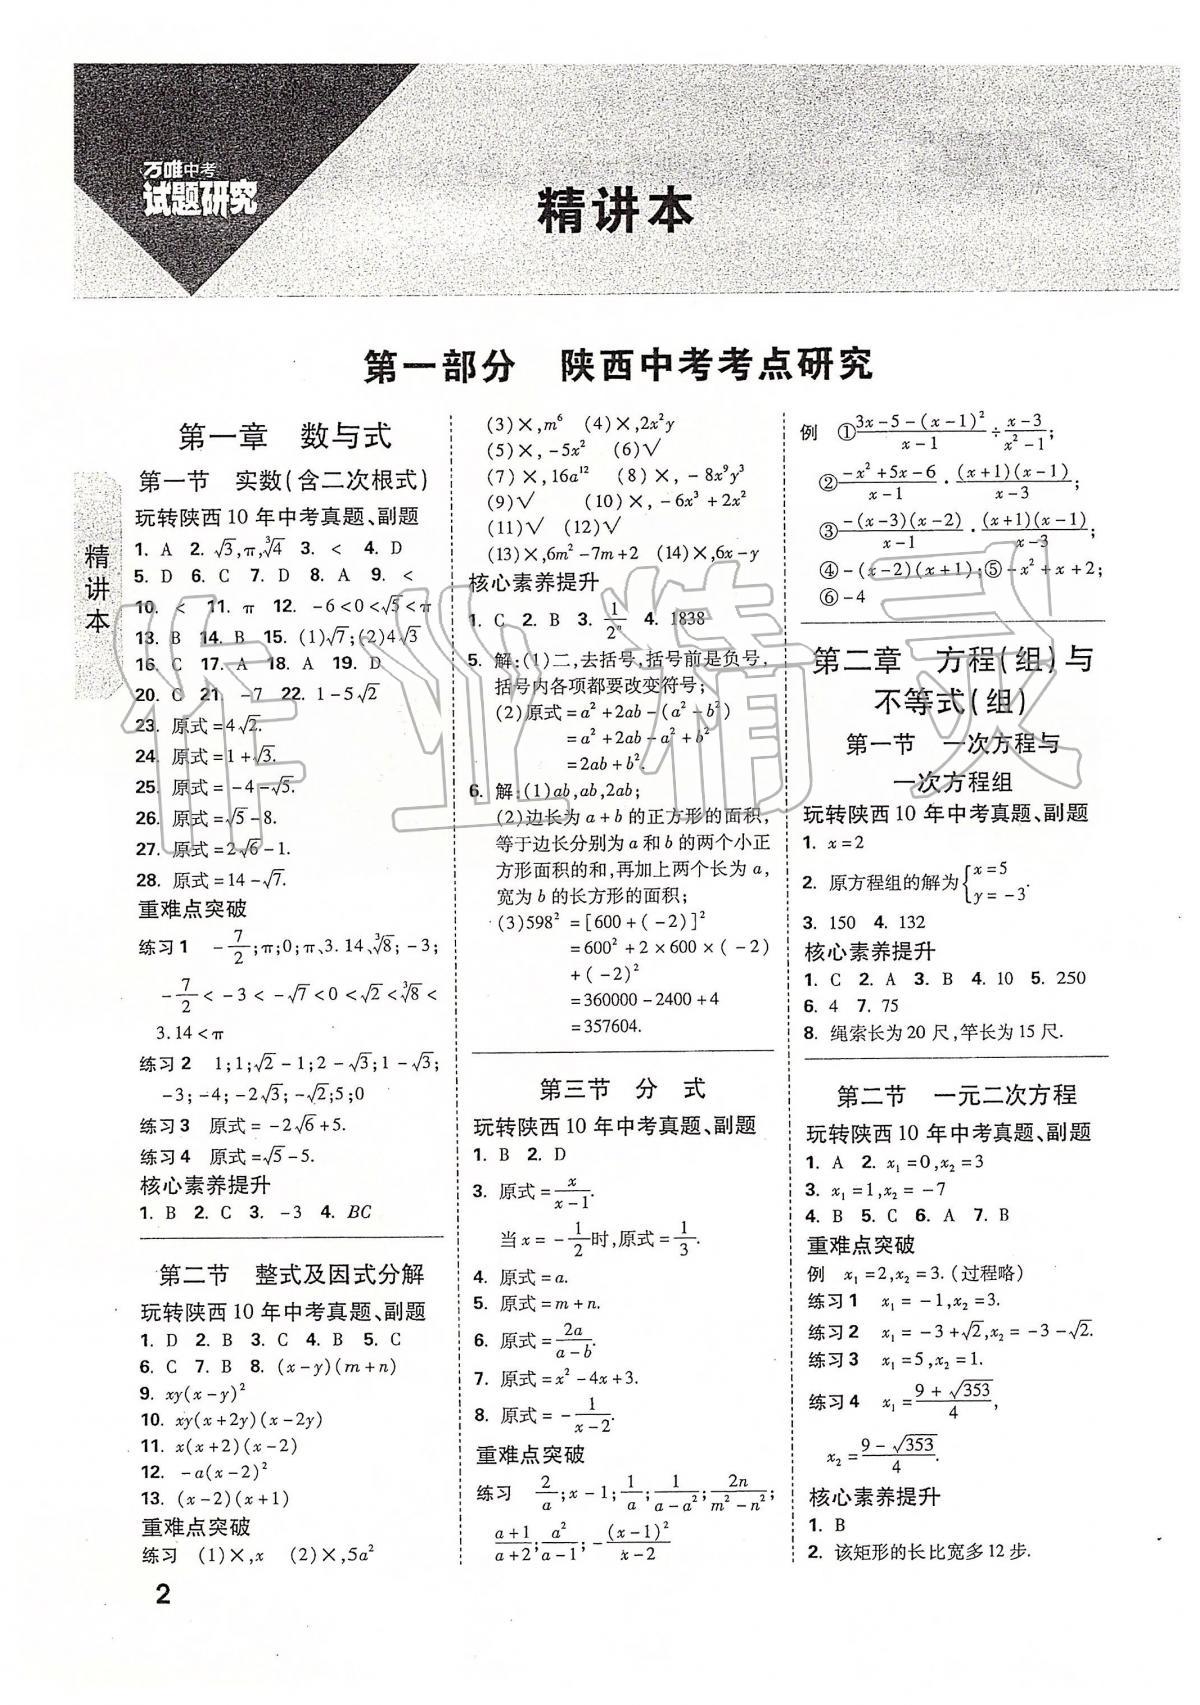 万唯中考
试题研究
精讲本
第一部分 陕西中考考点研究
精讲本
第一章 数与式
第一节 实数(含二次根式)
玩转陕西10年中考真题、副题
1. A 2. √3,π,∛4 3. < 4. D
5. D 6. C 7. D 8. A 9. <
10. < 11. π 12. -6<0<√5<π
13. B 14. B 15. (1)√7;(2)4√3
16. C 17. A 18. A 19. D
20. C 21 -7 22. 1-5√2
23. 原式=4√2.
24. 原式=1+√3.
25. 原式=-4-√5.
26. 原式=√5-8.
27. 原式=2√6-1.
28. 原式=14-√7.
重难点突破
练习1 -7/2;π;0;π、3.14、∛8;-3;
-7/2<-3<-√7<0<√2<∛8<
3.14<π
练习2 1;1;√2-1;2-√3;1-√3;
-3;-4;-2√3;-√2;5;0
练习3 原式=-2√6+5.
练习4 原式=√5-5.
核心素养提升
1. B 2. C 3. -3 4. BC
第二节 整式及因式分解
玩转陕西10年中考真题、副题
1. D 2. B 3. C 4. B 5. C
6. C 7. B 8. (x-y)(m+n)
9. xy(x-y)²
10. xy(x+2y)(x-2y)
11. x(x+2)(x-2)
12. -a(x-2)²
13. (x-2)(x+1)
重难点突破
练习 (1)×,x (2)×,5a²
(3)×,m⁶ (4)×,2x²y
(5)×,-5x² (6)√
(7)×,16a¹² (8)×,-8x⁹y³
(9)√ (10)×,-6x³+2x²
(11)√ (12)√
(13)×,6m²-7m+2 (14)×,6x-y
核心素养提升
1. C 2. B 3. 1/2ⁿ 4. 1838
5. 解:(1)二,去括号,括号前是负号,
括号内各项都要改变符号;
(2)原式=a²+2ab-(a²-b²)
=a²+2ab-a²+b²
=2ab+b².
6. 解:(1)ab,ab,2ab;
(2)边长为a+b的正方形的面积,
等于边长分别为a和b的两个小正
方形面积的和,再加上两个长为a,
宽为b的长方形的面积;
(3)598²=[600+(-2)]²
=600²+2×600×(-2)
+(-2)²
=360000-2400+4
=357604.
第三节 分 式
玩转陕西10年中考真题、副题
1. B 2. D
3. 原式=x/(x-1).
当x=-1/2时,原式=1/3.
4. 原式=a.
5. 原式=m+n.
6. 原式=2a/(a-b).
7. 原式=x²-4x+3.
8. 原式=-1/(x-2).
重难点突破
练习 2/a;x-1;1/a;1/(a-a²);2n/(m²-n²);
(a+1)/(a+2);a²/(a-1);-(x-1)²/(x-2)
例 ①(3x-5-(x-1)²)/(x-1)÷(x-3)/(x²-1);
②(-x²+5x-6)/(x-1)·((x+1)(x-1))/(x-3);
③(-(x-3)(x-2))/(x-1)·((x+1)(x-1))/(x-3);
④-(x-2)(x+1);⑤-x²+x+2;
⑥-4
第二章 方程(组)与
不等式(组)
第一节 一次方程与
一次方程组
玩转陕西10年中考真题、副题
1. x=2
2. 原方程组的解为{x=5 y=-3.
3. 150 4. 132
核心素养提升
1. C 2. A 3. B 4. 10 5. 250
6. 4 7. 75
8. 绳索长为20尺,竿长为15尺.
第二节 一元二次方程
玩转陕西10年中考真题、副题
1. A 2. x₁=0,x₂=3
3. x₁=1,x₂=-7
4. B 5. C 6. A 7. B
重难点突破
例 x₁=2,x₂=3.(过程略)
练习1 x₁=-1,x₂=3.
练习2 x₁=-3+√2,x₂=-3-√2.
练习3 x₁=5,x₂=1.
练习4 x₁=(9+√353)/4,
x₂=(9-√353)/4.
核心素养提升
1. B
2. 该矩形的长比宽多12步.
2
作业精灵